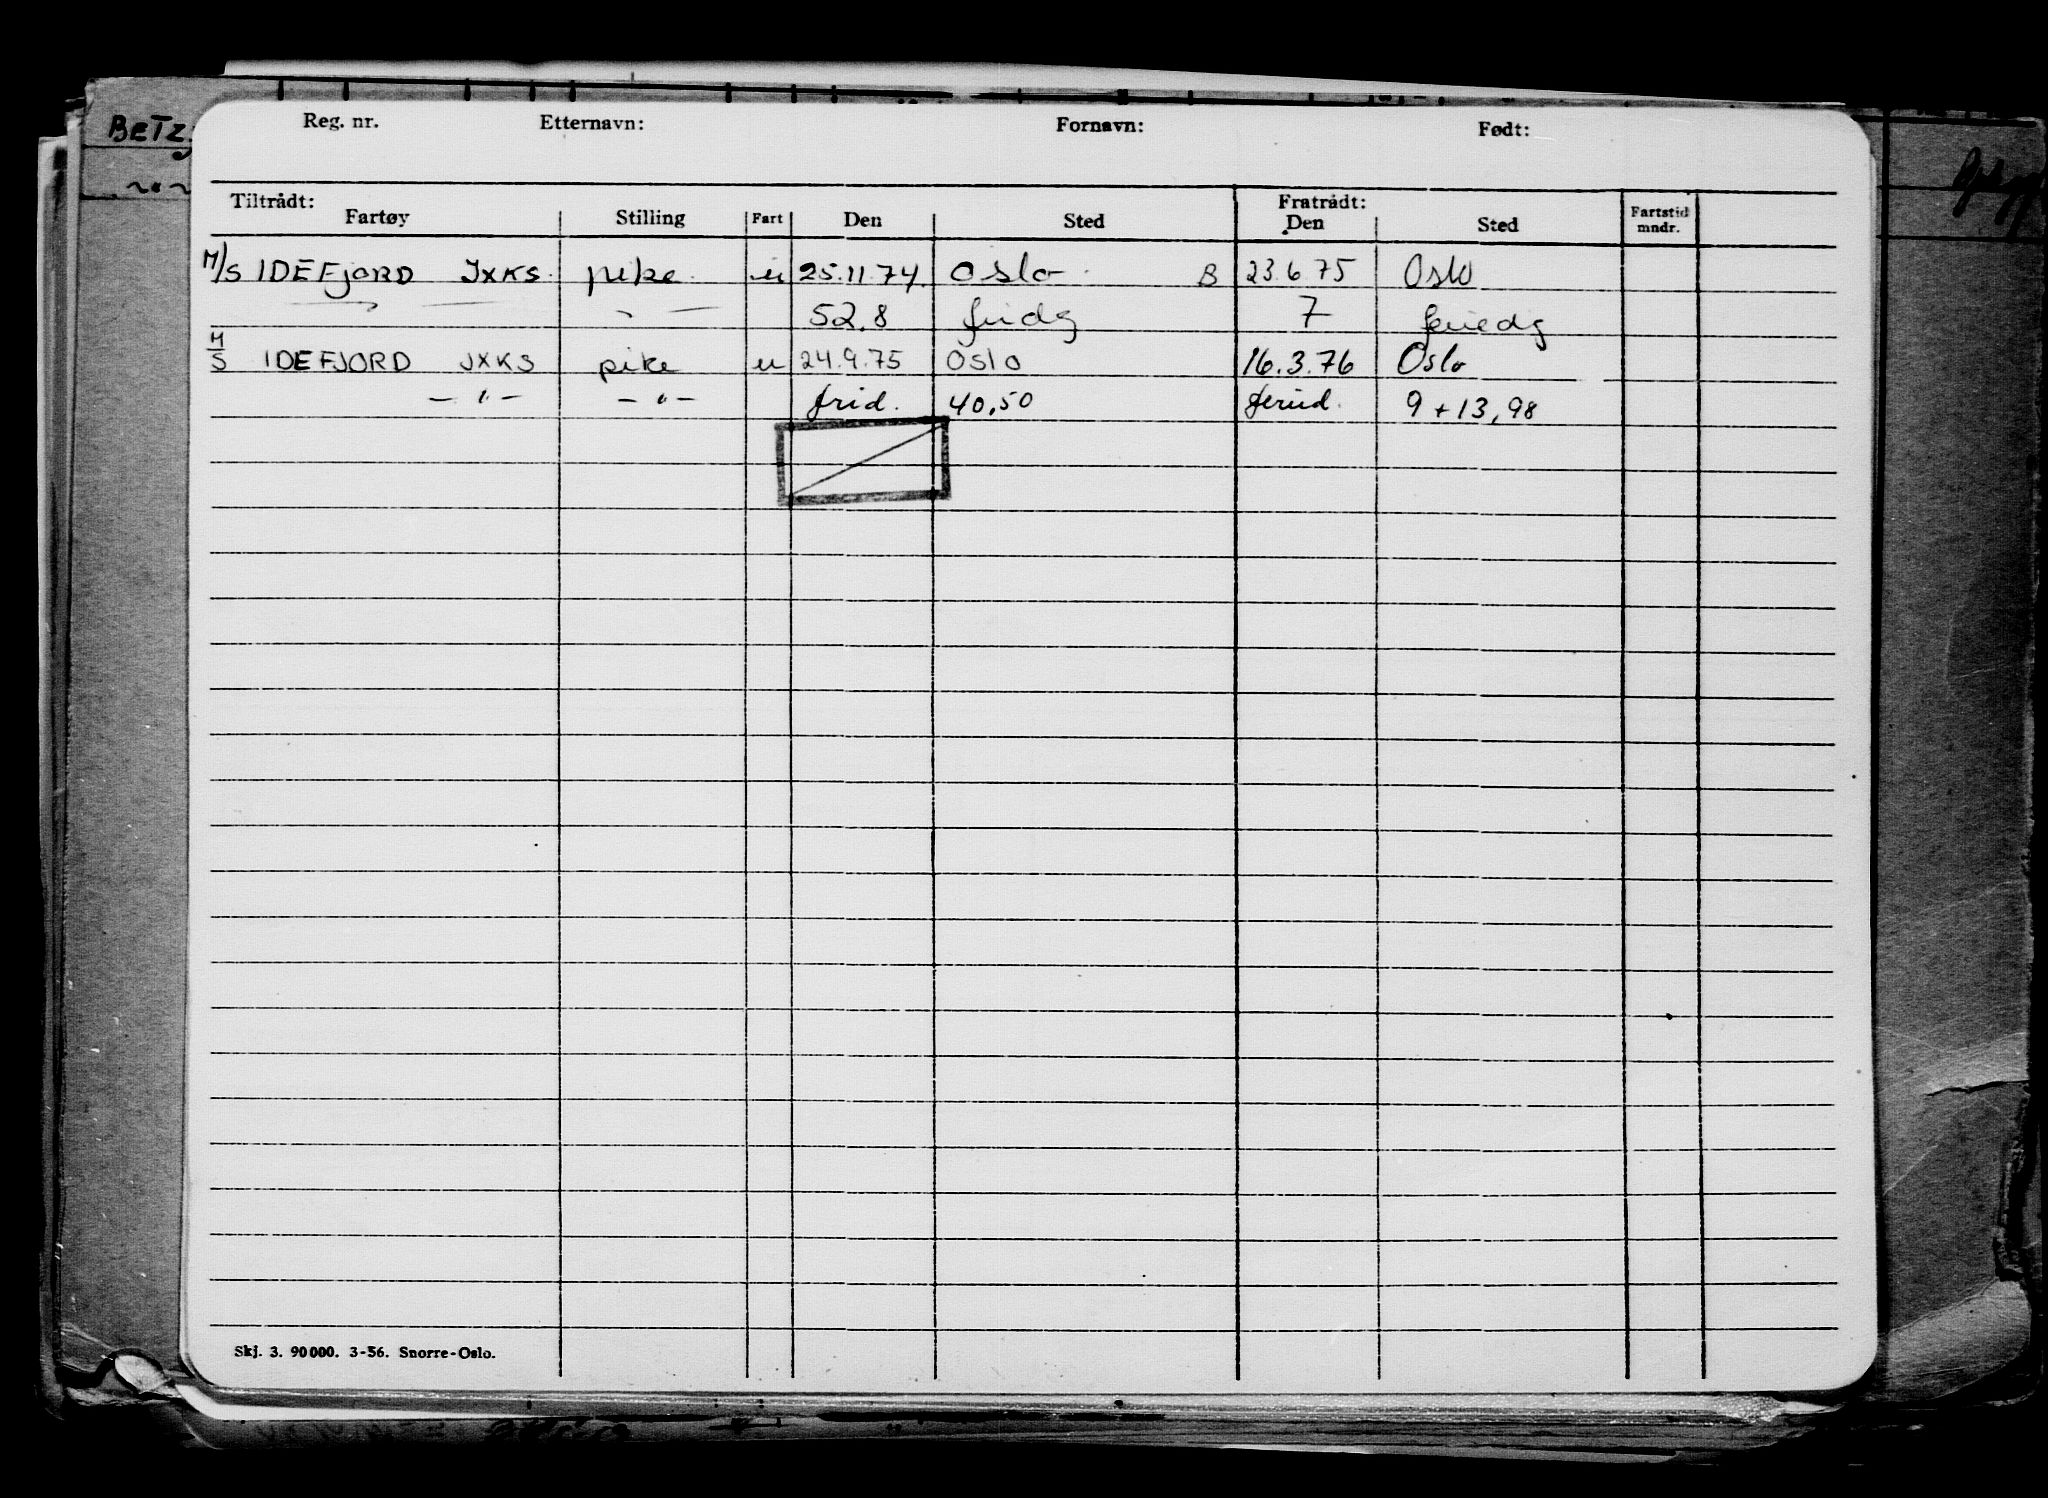 BeTz
Reg. nr. Etternavn: Fornavn: Født:
Tiltrådt: Fratrådt:
Fartøy Stilling Fart Den Sted Den Sted Fartstid mndr.
M/S IDEFJORD JXKS. pike u 25.11.74. Oslo B 23.6.75 Oslo
52.8 fridg 7 feriedg
M/S IDEFJORD JXKS pike u 24.9.75 Oslo 16.3.76 Oslo
— " — — " — frid. 40,50 feried. 9 + 13,98
Skj. 3. 90000. 3-56. Snorre-Oslo.